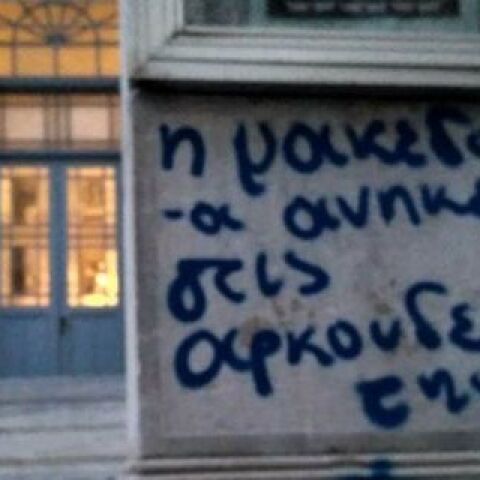 η μακεδο
-α ανηκε
στις
αρκουδε
της